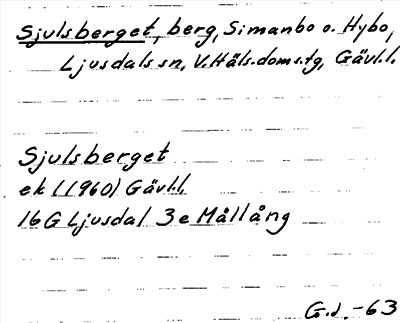 Sjulsberget, berg, Simanbo o. Hybo,
Ljusdals sn, V. Häls. doms.tg, Gävl.l.
Sjulsberget
ek (1960) Gävl.l.
16 G Ljusdal 3 e Mållång
G.d. -63